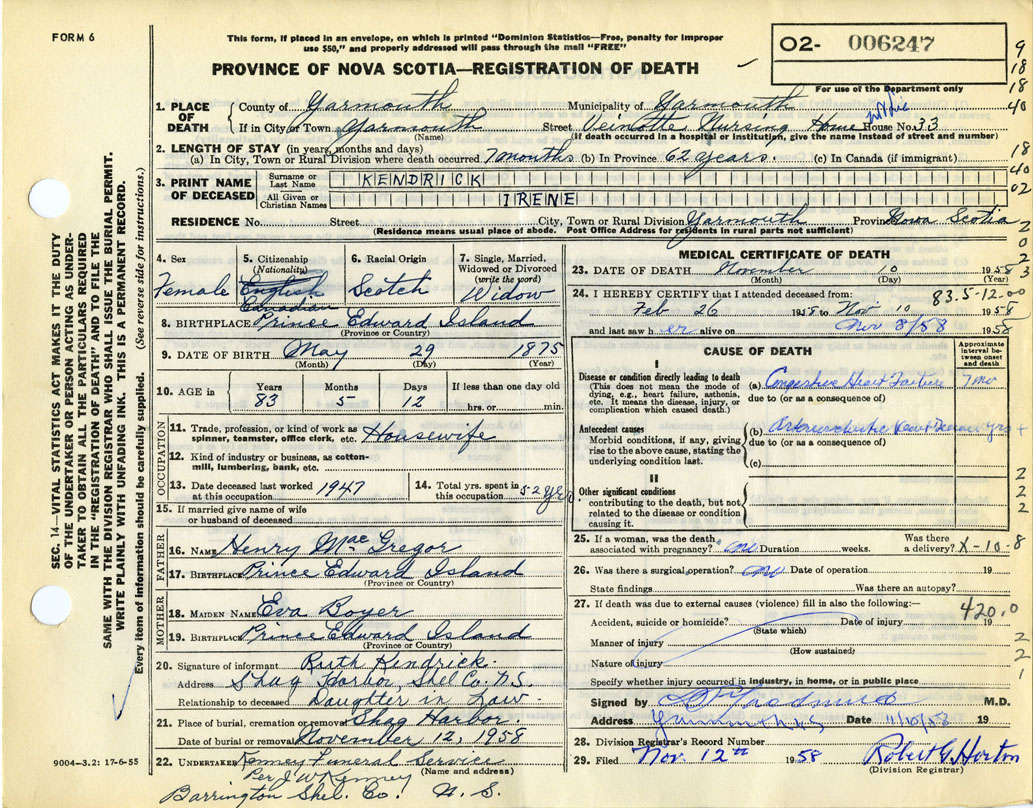 FORM 6
This form, if placed in an envelope, on which is printed "Dominion Statistics—Free, penalty for improper
use $50," and properly addressed will pass through the mail "FREE"
PROVINCE OF NOVA SCOTIA—REGISTRATION OF DEATH
O2- 006247
For use of the Department only
9
18
18
40
18
40
02
2
0
2
3
1. PLACE OF DEATH
County of Yarmouth Municipality of Yarmouth
If in City or Town Yarmouth Street Veinotte Nursing Home House No. 33
(Name) (If death occurred in a hospital or institution, give the name instead of street and number)
2. LENGTH OF STAY (in years, months and days)
(a) In City, Town or Rural Division where death occurred 7 months (b) In Province 62 years. (c) In Canada (if immigrant)
3. PRINT NAME OF DECEASED
Surname or Last Name KENDRICK
All Given or Christian Names IRENE
RESIDENCE No. Street City, Town or Rural Division Yarmouth Province Nova Scotia
(Residence means usual place of abode. Post Office Address for residents in rural parts not sufficient)
4. Sex Female
5. Citizenship (Nationality) English Canadian
6. Racial Origin Scotch
7. Single, Married, Widowed or Divorced (write the word) Widow
8. BIRTHPLACE Prince Edward Island
(Province or Country)
9. DATE OF BIRTH May 29 1875
(Month) (Day) (Year)
10. AGE in Years 83 Months 5 Days 12 If less than one day old
hrs. or min.
OCCUPATION
11. Trade, profession, or kind of work as spinner, teamster, office clerk, etc. Housewife
12. Kind of industry or business, as cotton-mill, lumbering, bank, etc.
13. Date deceased last worked at this occupation 1947
14. Total yrs. spent in this occupation 52 yrs.
15. If married give name of wife or husband of deceased
FATHER
16. NAME Henry MacGregor
17. BIRTHPLACE Prince Edward Island
(Province or Country)
MOTHER
18. MAIDEN NAME Eva Boyer
19. BIRTHPLACE Prince Edward Island
(Province or Country)
20. Signature of informant Ruth Kendrick.
Address Shag Harbor, Shel. Co. N.S.
Relationship to deceased Daughter in Law.
21. Place of burial, cremation or removal Shag Harbor.
Date of burial or removal November 12, 1958
22. UNDERTAKER Kenney Funeral Service
(Name and address)
Per J W Kenney
Barrington Shel. Co. N. S.
9004-3.2: 17-6-55
MEDICAL CERTIFICATE OF DEATH
23. DATE OF DEATH November 10 1958
(Month) (Day) (Year)
24. I HEREBY CERTIFY that I attended deceased from: 83.5-12.00
Feb 26 1958 to Nov 10 1958
and last saw her alive on Nov 8/58 1958
CAUSE OF DEATH
Approximate interval between onset and death
I
Disease or condition directly leading to death
(This does not mean the mode of dying, e.g., heart failure, asthenia, etc. It means the disease, injury, or complication which caused death.)
(a) Congestive Heart Failure 7 mo
due to (or as a consequence of)
Antecedent causes
Morbid conditions, if any, giving rise to the above cause, stating the underlying condition last.
(b) Arteriosclerotic Heart Disease yrs +
due to (or as a consequence of)
(c)
II
Other significant conditions
contributing to the death, but not related to the disease or condition causing it.
2
2
2
25. If a woman, was the death associated with pregnancy? no Duration weeks. Was there a delivery? X-10-8
26. Was there a surgical operation? no Date of operation 19
State findings Was there an autopsy?
27. If death was due to external causes (violence) fill in also the following:— 420.0
Accident, suicide or homicide? Date of injury 19
(State which)
Manner of injury
(How sustained)
Nature of injury
2
2
1
Specify whether injury occurred in industry, in home, or in public place
Signed by M.D.
Address Yarmouth N.S Date 11/10/58 19
28. Division Registrar's Record Number
29. Filed Nov. 12th 1958 Robert G. Horton
(Division Registrar)
SEC. 14—VITAL STATISTICS ACT MAKES IT THE DUTY
OF THE UNDERTAKER OR PERSON ACTING AS UNDER-
TAKER TO OBTAIN ALL THE PARTICULARS REQUIRED
IN THE "REGISTRATION OF DEATH" AND TO FILE THE
SAME WITH THE DIVISION REGISTRAR WHO SHALL ISSUE THE BURIAL PERMIT.
WRITE PLAINLY WITH UNFADING INK. THIS IS A PERMANENT RECORD.
Every item of information should be carefully supplied. (See reverse side for instructions.)